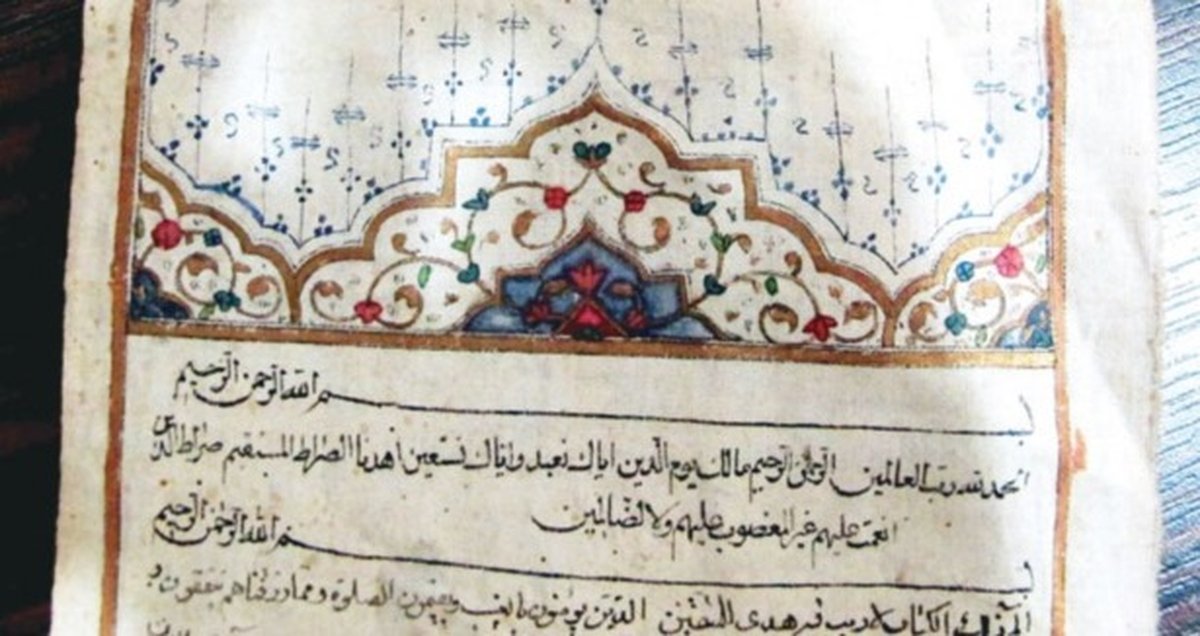 بسم الله الرحمن الرحيم
الحمد لله رب العالمين الرحمن الرحيم مالك يوم الدين اياك نعبد واياك نستعين اهدنا الصراط المستقيم صراط الذين
انعمت عليهم غير المغضوب عليهم ولا الضالين
بسم الله الرحمن الرحيم
الم ذلك الكتاب لا ريب فيه هدى للمتقين الذين يؤمنون بالغيب ويقيمون الصلوة ومما رزقناهم ينفقون